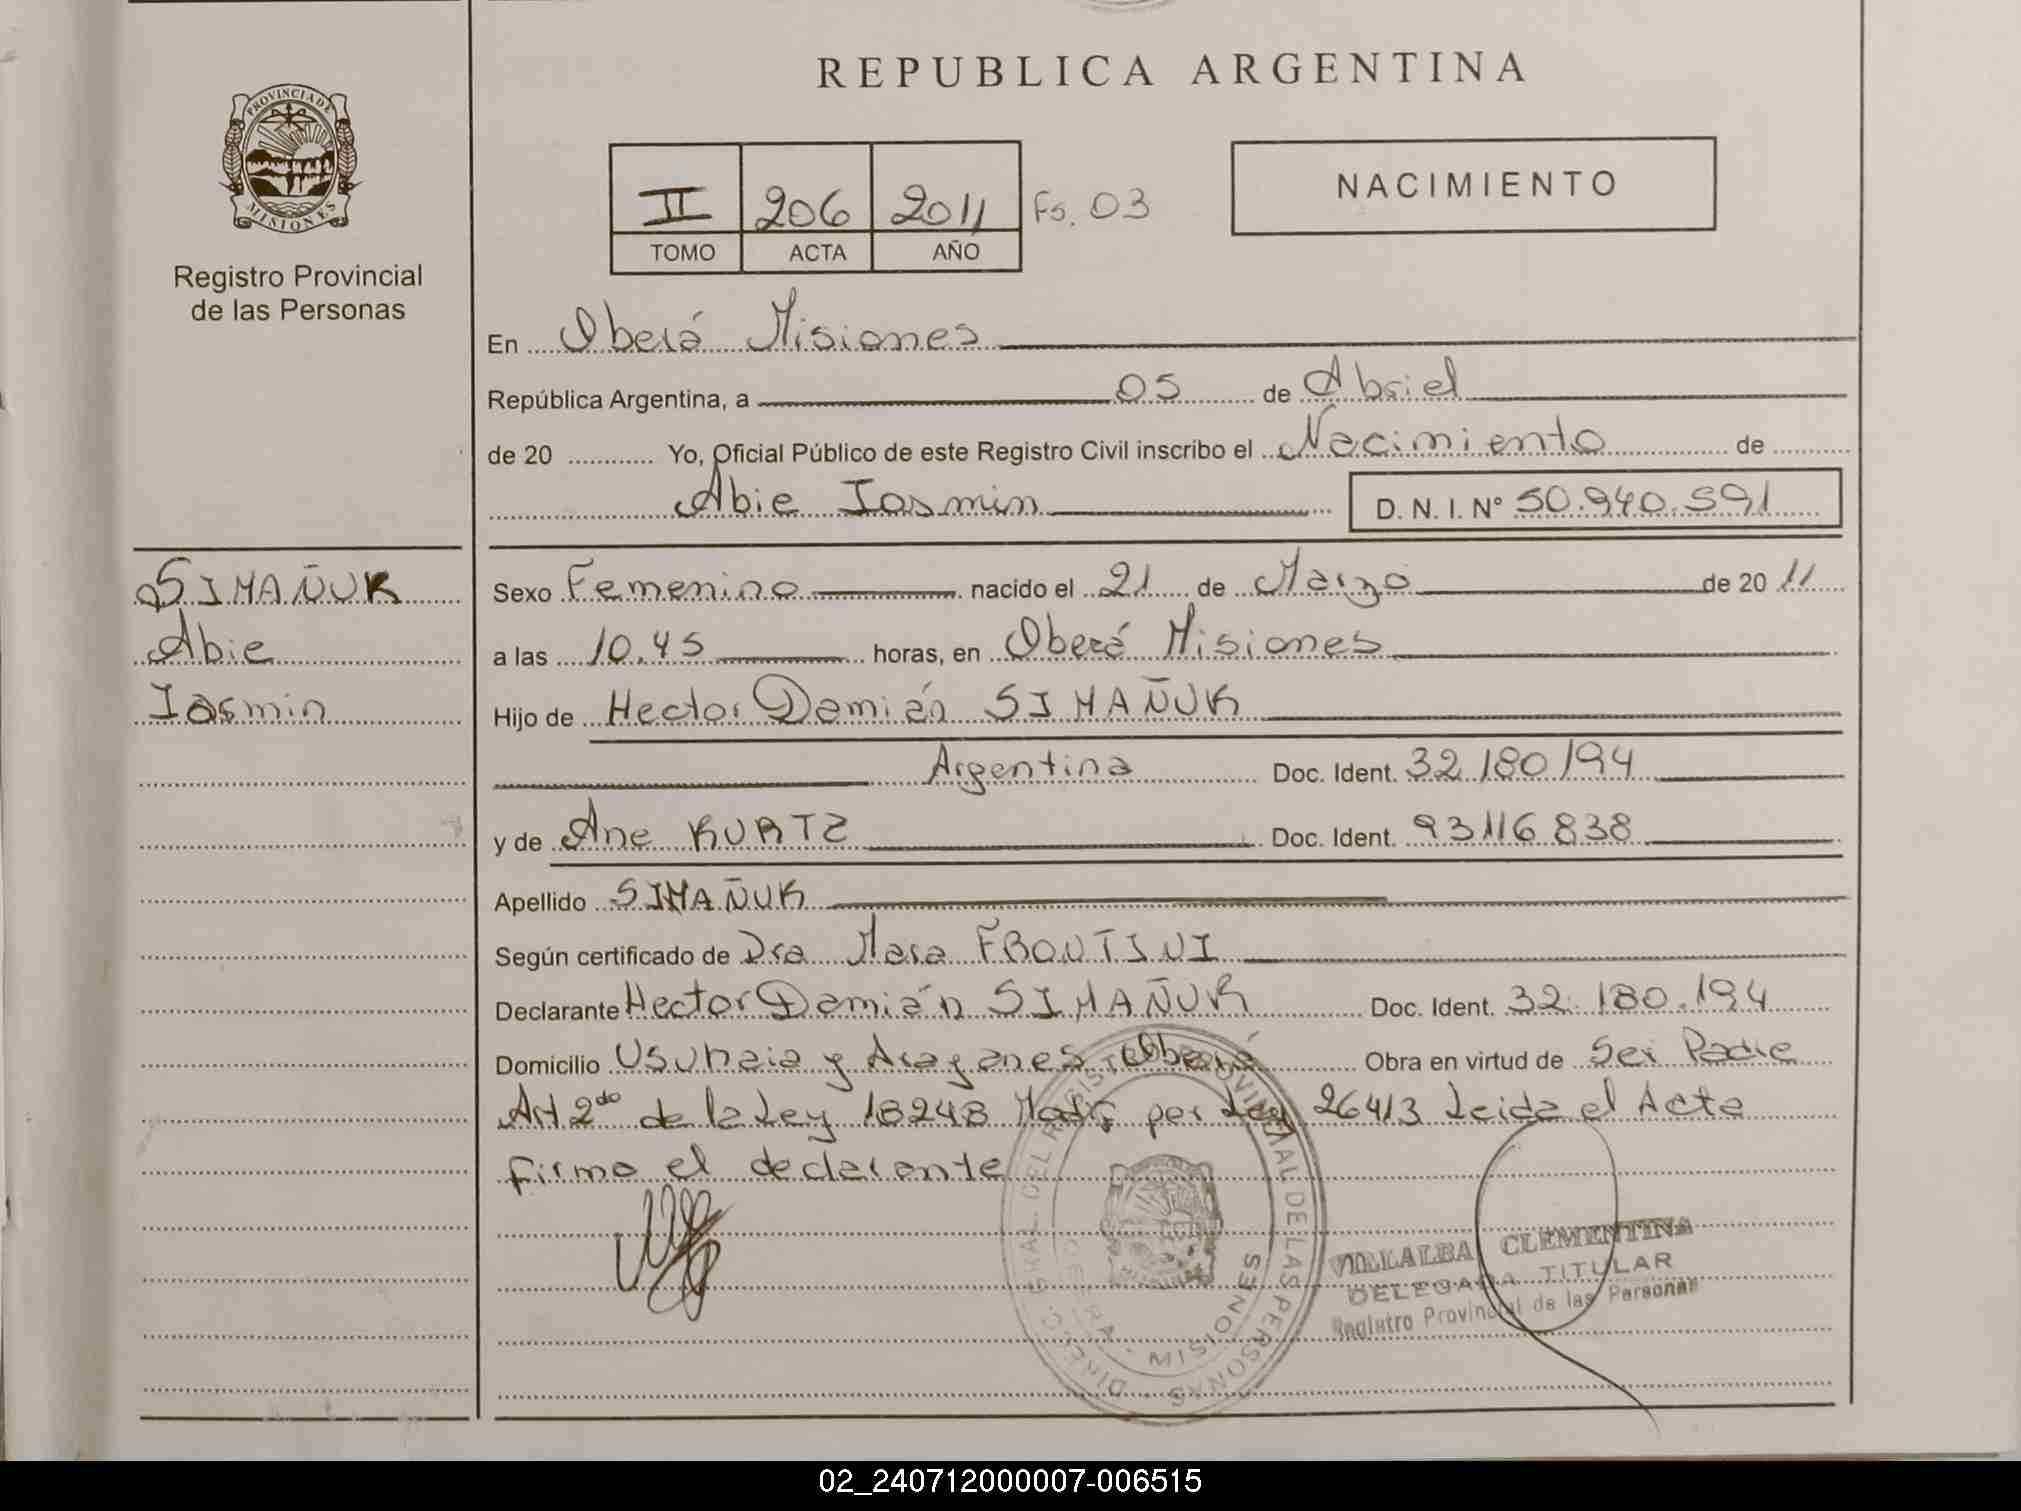 REPUBLICA ARGENTINA
PROVINCIA DE
MISIONES
Registro Provincial
de las Personas
II 206 2011 Fs. 03
TOMO ACTA AÑO
NACIMIENTO
En Oberá Misiones
República Argentina, a 05 de Abriel
de 20 Yo, Oficial Público de este Registro Civil inscribo el Nacimiento de
Abie Iasmin D. N. I. N° 50.940.591
SIMAÑUK
Abie
Iasmin
Sexo Femenino nacido el 21 de Marzo de 20 11
a las 10.45 horas, en Oberá Misiones
Hijo de Hector Damián SIMAÑUK
Argentina Doc. Ident. 32 180 194
y de Ane KURTZ Doc. Ident. 93116 838
Apellido SIMAÑUK
Según certificado de Dra Mara FRONTINI
Declarante Hector Damián SIMAÑUK Doc. Ident. 32.180.194
Domicilio Usuhaia y Aragones Oberá Obra en virtud de Ser Padre
Art 2do de la Ley 18248 Modif por Ley 26413 Leida el Acta
firma el declarante
DIRECC. GRAL. DEL REGISTRO PROVINCIAL DE LAS PERSONAS
OBERA - MISIONES
VILLALBA CLEMENTINA
DELEGADA TITULAR
Registro Provincial de las Personas
02_240712000007-006515